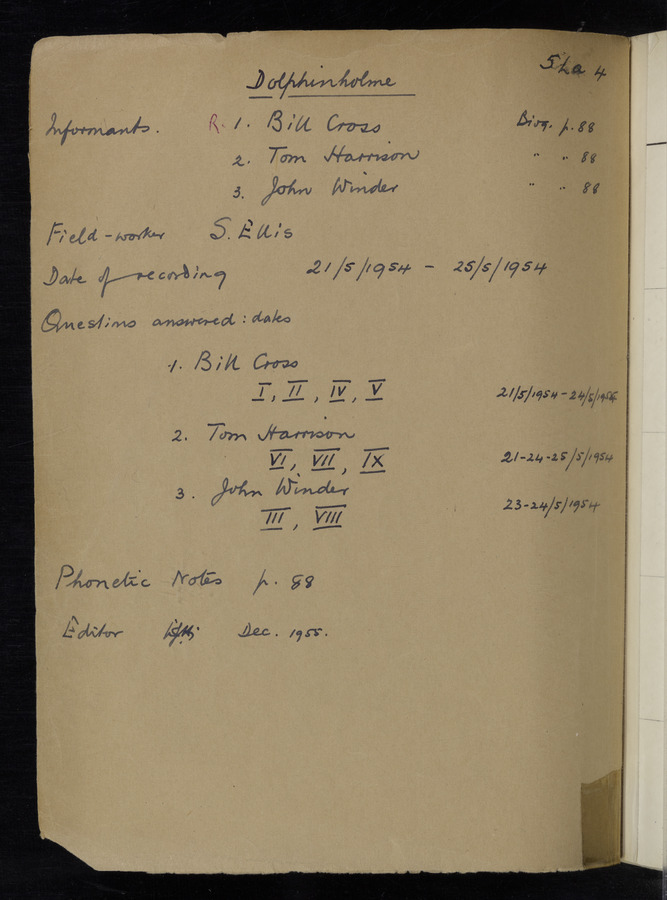 5 La 4
Dolphinholme
Informants. R. 1. Bill Cross Biog. p. 88
2. Tom Harrison " " 88
3. John Winder " " 88
Field-worker S. Ellis
Date of recording 21/5/1954 - 25/5/1954
Questions answered: dates
1. Bill Cross
I, II, IV, V 21/5/1954 - 24/5/1954
2. Tom Harrison
VI, VII, IX 21-24-25/5/1954
3. John Winder
III, VIII 23-24/5/1954
Phonetic Notes p. 88
Editor Dec. 1955.